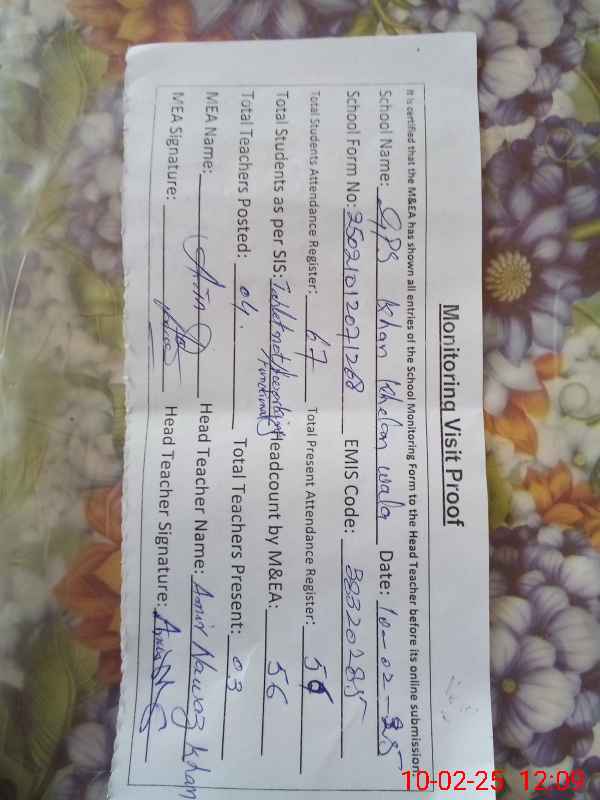 Monitoring Visit Proof
It is certified that the M&EA has shown all entries of the School Monitoring Form to the Head Teacher before its online submission
School Name: GPS Khan Khelan wala Date: 10-02-25
School Form No: 25021012071268 EMIS Code: 38320285
Total Students Attendance Register: 67 Total Present Attendance Register: 56
Total Students as per SIS: Tablet not Functional Headcount by M&EA: 56
Total Teachers Posted: 04. Total Teachers Present: 03
MEA Name: Head Teacher Name: Amir Nawaz Khan
MEA Signature: Head Teacher Signature:
10-02-25 12:09